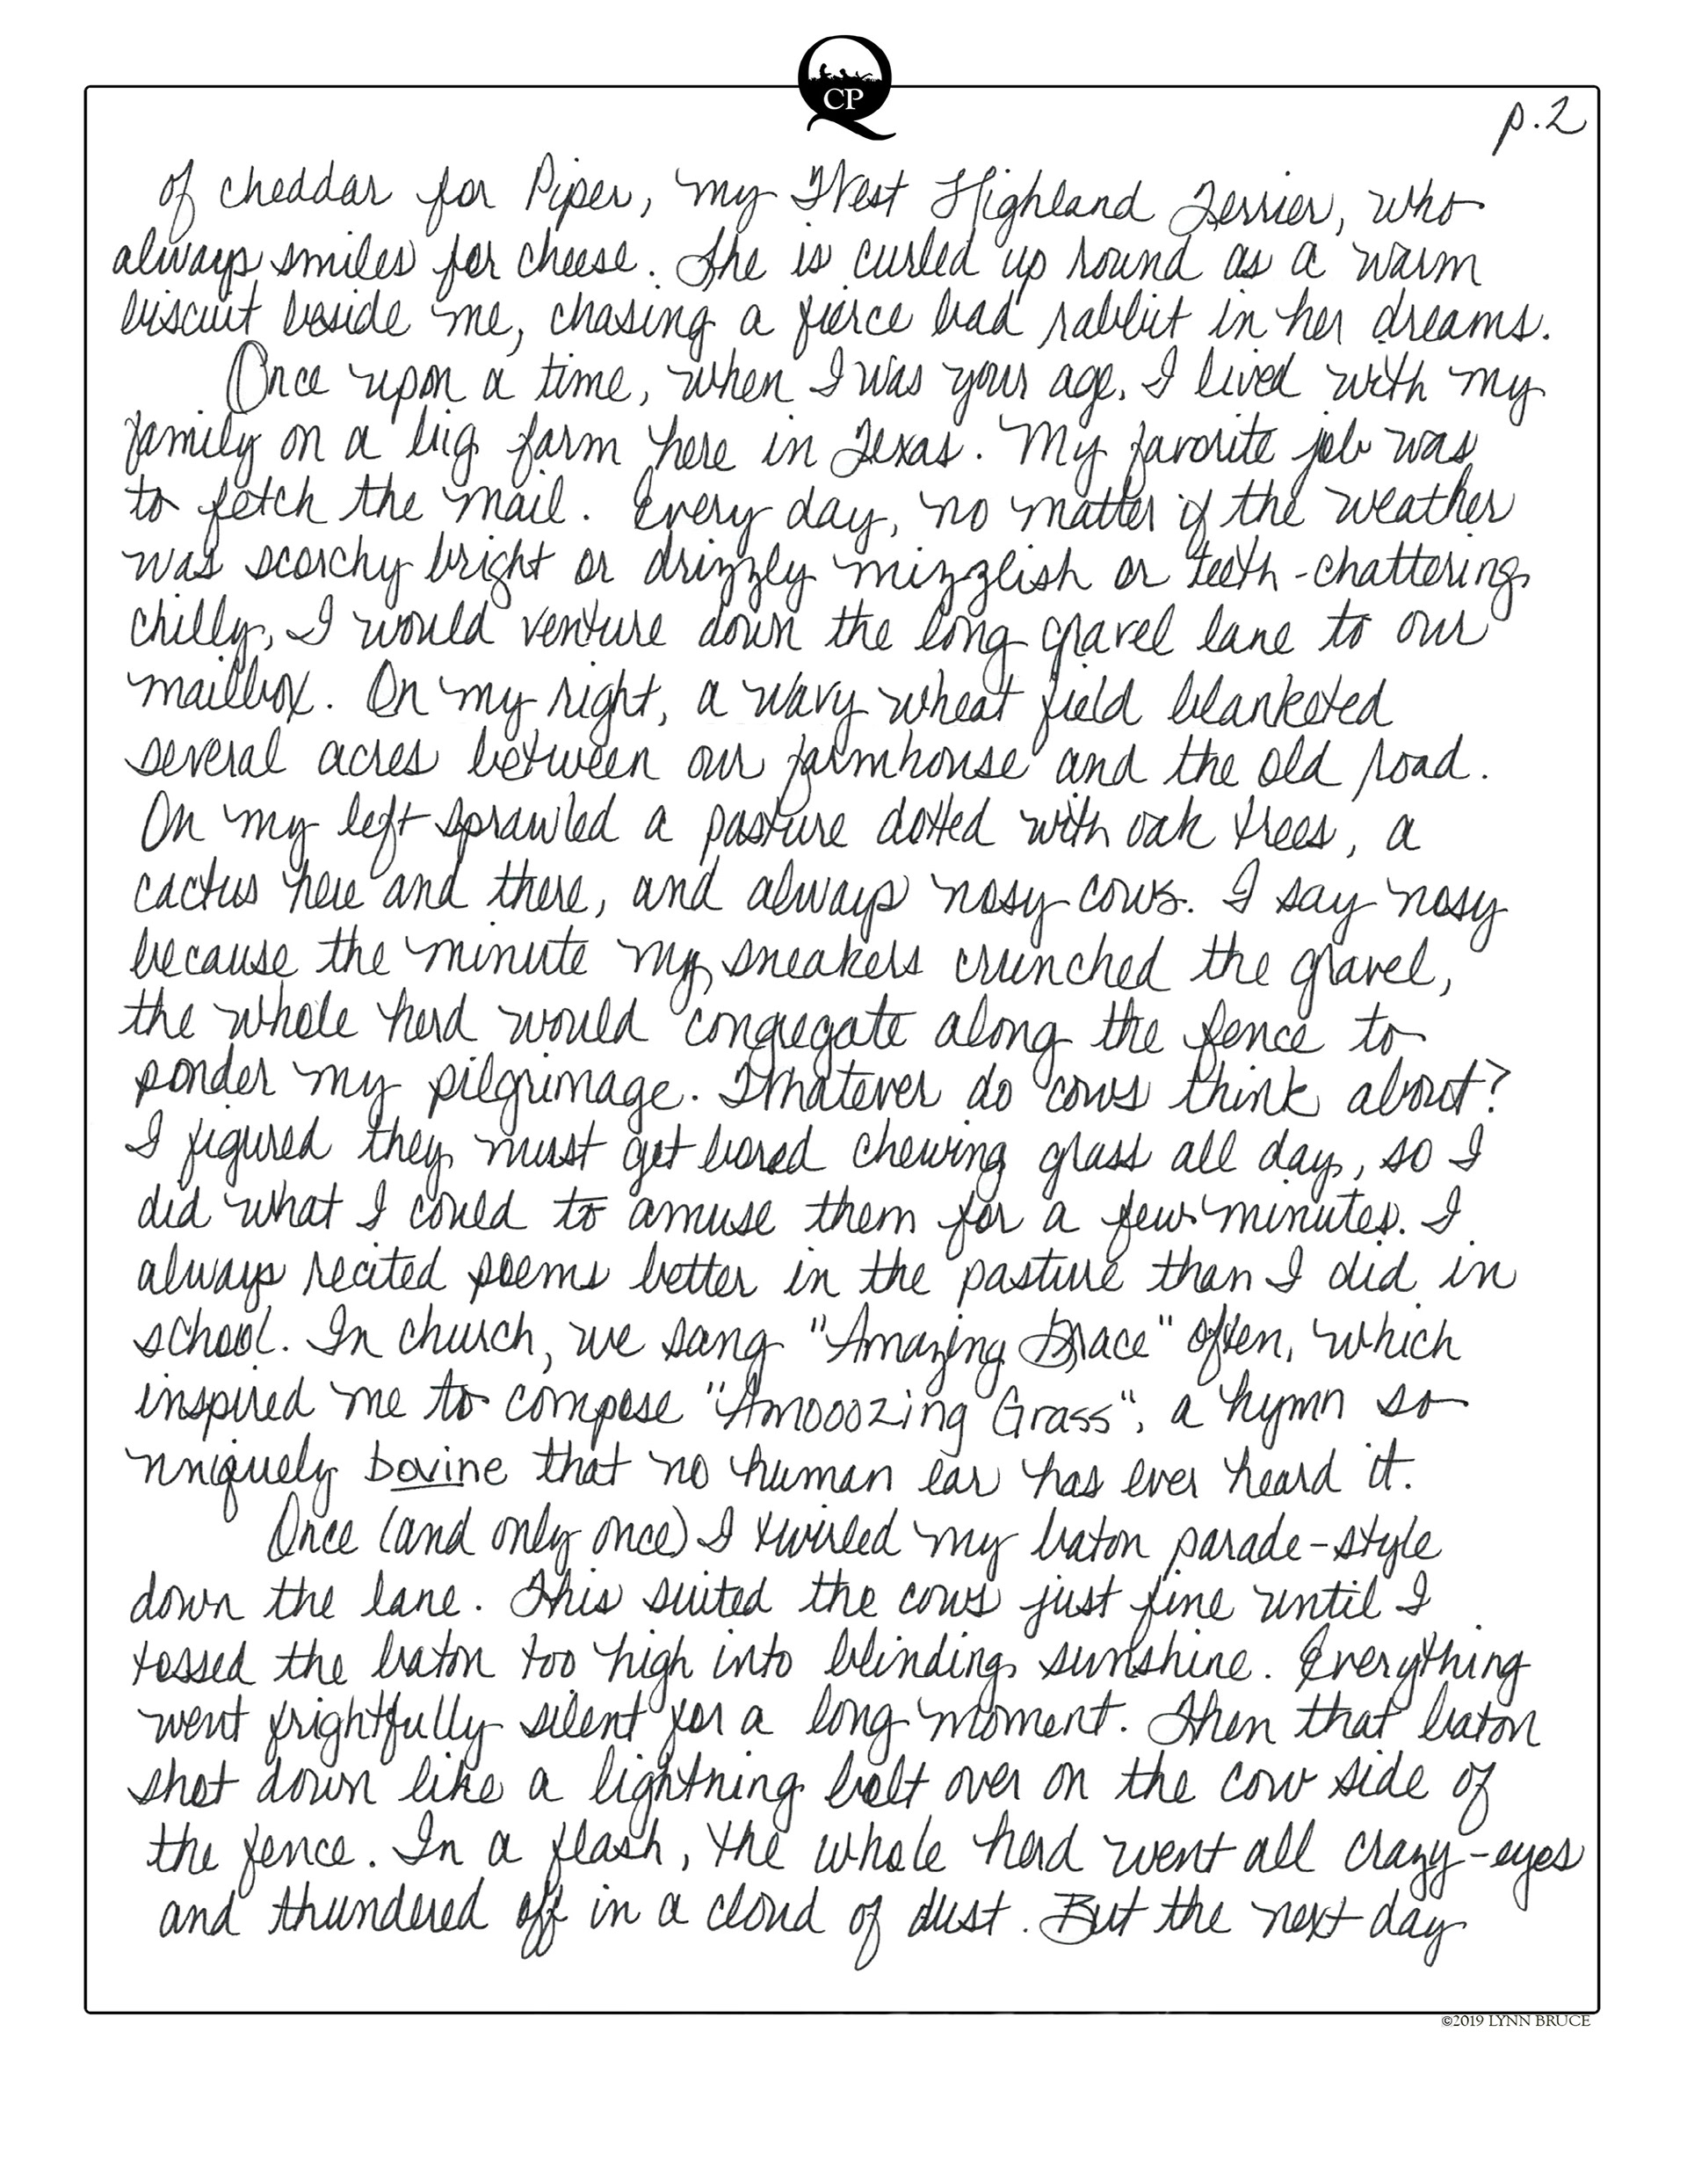 CP
p.2
of cheddar for Piper, my West Highland Terrier, who
always smiles for cheese. She is curled up round as a warm
biscuit beside me, chasing a fierce bad rabbit in her dreams.
Once upon a time, when I was your age, I lived with my
family on a big farm here in Texas. My favorite job was
to fetch the mail. Every day, no matter if the weather
was scorchy bright or drizzly mizzlish or teeth-chattering
chilly, I would venture down the long gravel lane to our
mailbox. On my right, a wavy wheat field blanketed
several acres between our farmhouse and the old road.
On my left sprawled a pasture dotted with oak trees, a
cactus here and there, and always nosy cows. I say nosy
because the minute my sneakers crunched the gravel,
the whole herd would congregate along the fence to
ponder my pilgrimage. Whatever do cows think about?
I figured they must get bored chewing grass all day, so I
did what I could to amuse them for a few minutes. I
always recited poems better in the pasture than I did in
school. In church, we sang "Amazing Grace" often, which
inspired me to compose "Amooozing Grass", a hymn so
uniquely bovine that no human ear has ever heard it.
Once (and only once) I twirled my baton parade-style
down the lane. This suited the cows just fine until I
tossed the baton too high into blinding sunshine. Everything
went frightfully silent for a long moment. Then that baton
shot down like a lightning bolt over on the cow side of
the fence. In a flash, the whole herd went all crazy-eyes
and thundered off in a cloud of dust. But the next day
©2019 LYNN BRUCE